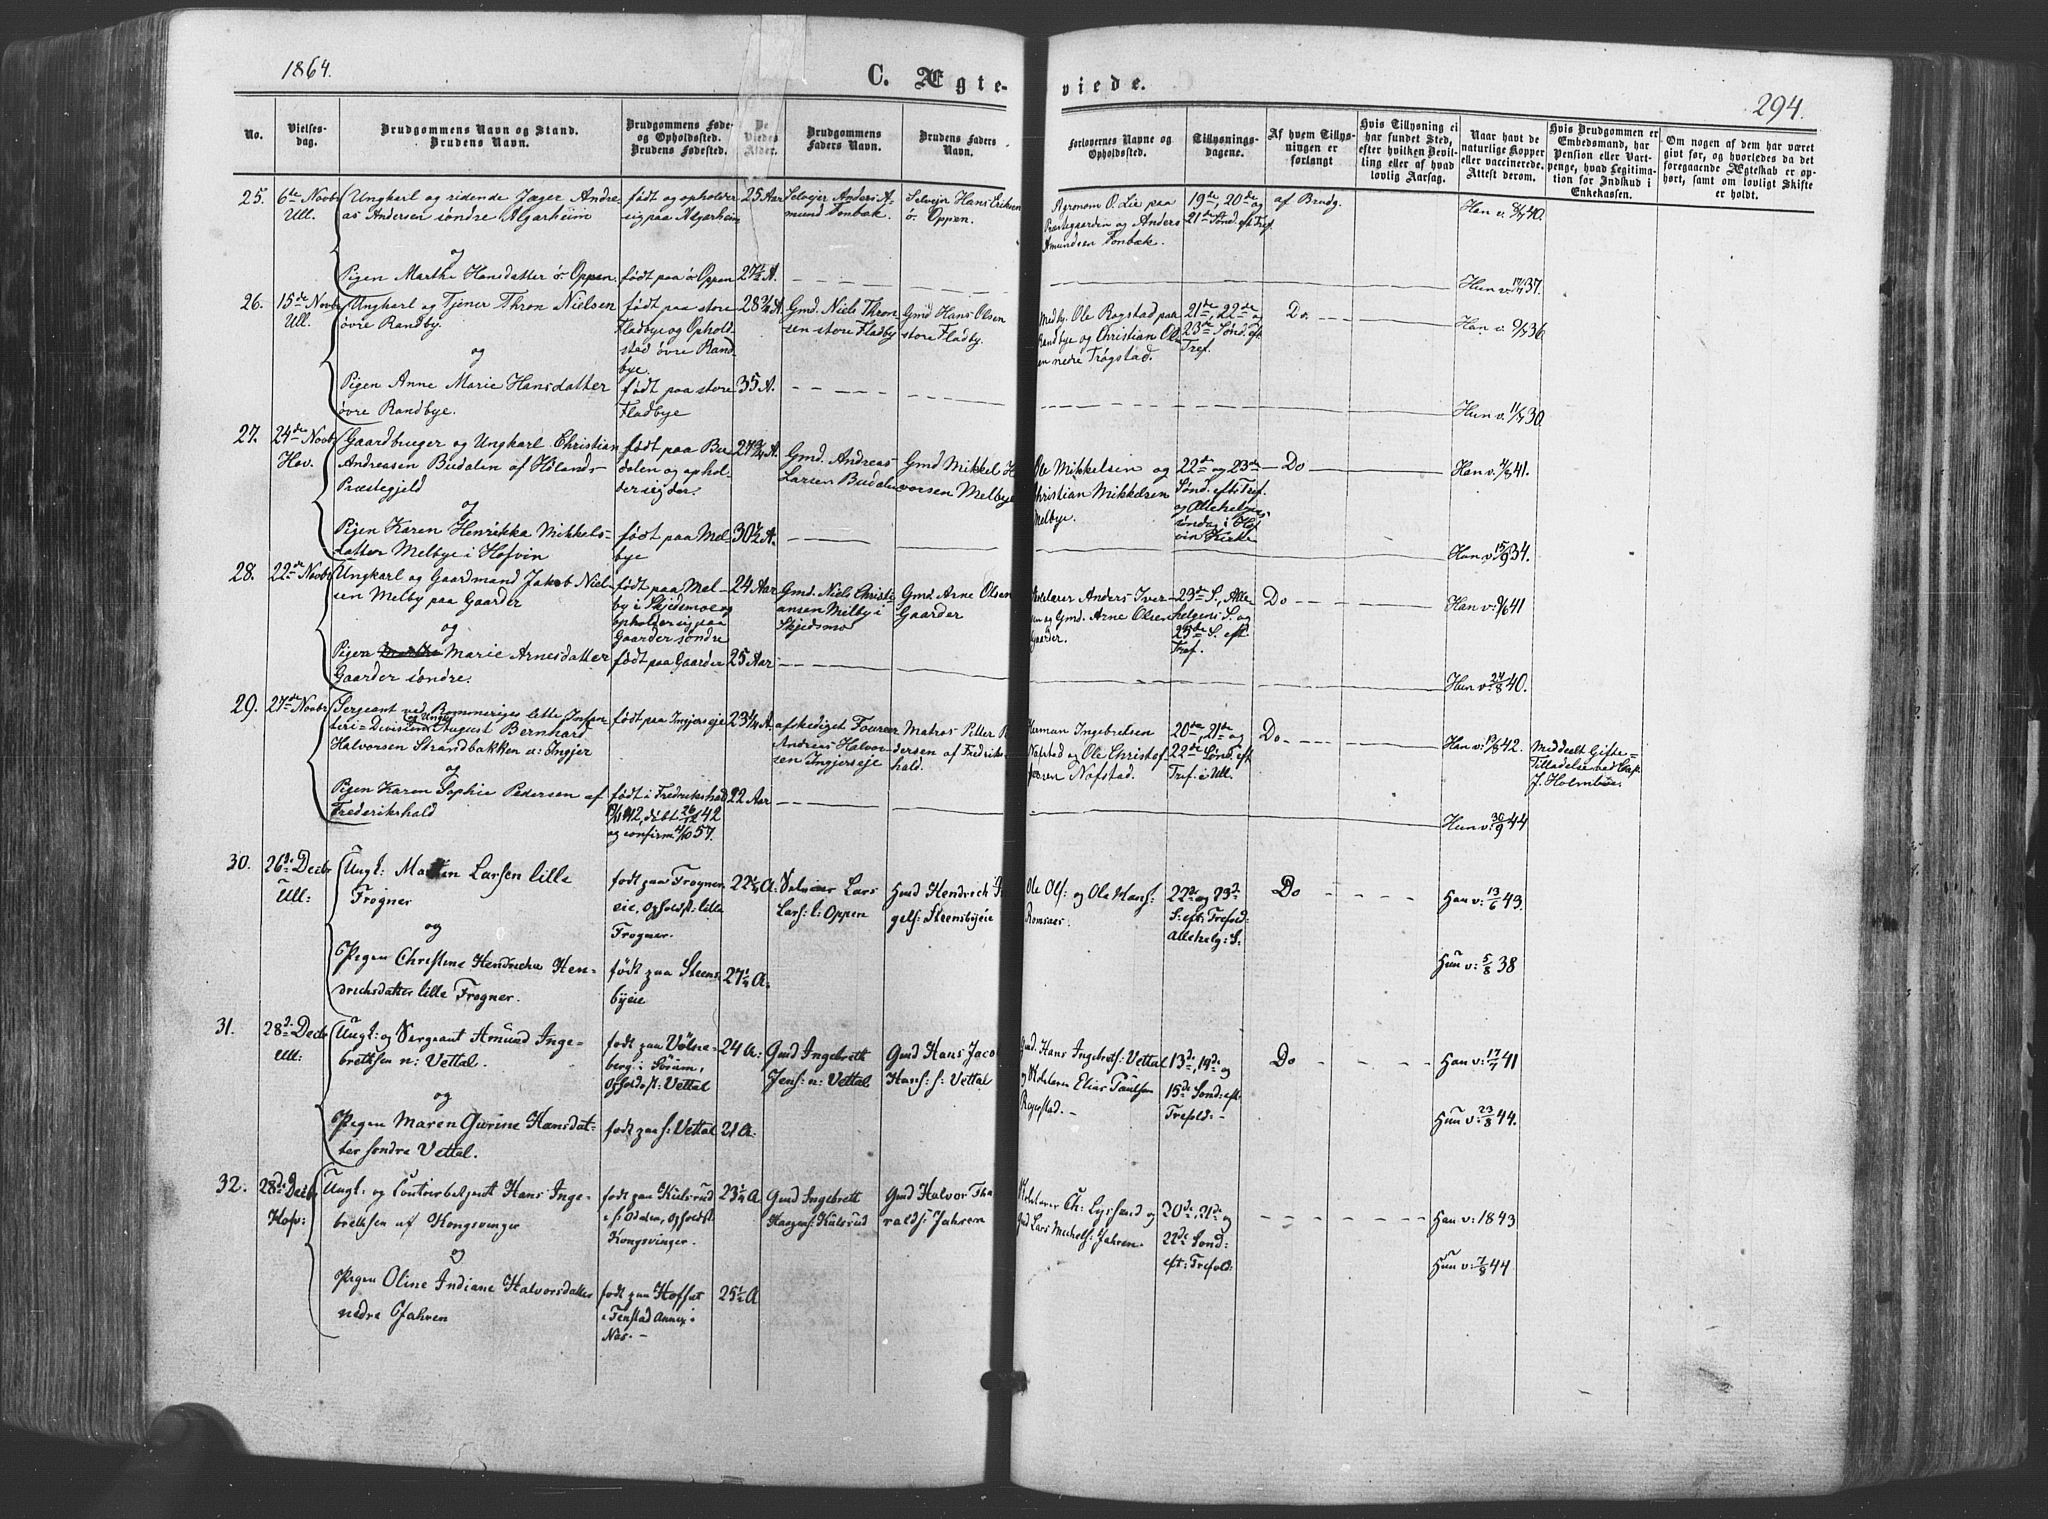 1864.
C. Ægte-
viede.
294.
No.
Vielses-
dag.
Brudgommens Navn og Stand.
Brudens Navn.
Brudgommens Føde-
og Opholdssted.
Brudens Fødested.
De
Viedes
Alder.
Brudgommens
Faders Navn.
Brudens Faders
Navn.
Forlovernes Navne og
Opholdssted.
Tillysnings-
dagene.
Af hvem Tillys-
ningen er
forlangt
Hvis Tillysning ei
har fundet Sted,
efter hvilken Bevil-
ling eller af hvad
lovlig Aarsag.
Naar havt de
naturlige Kopper
eller vaccinerede.
Attest derom.
Hvis Brudgommen er
Embedsmand, har
Pension eller Vart-
penge, hvad Legitima-
tion for Indskud i
Enkekassen.
Om nogen af dem har været
givt før, og hvorledes da det
foregaaende Ægteskab er op-
hørt, samt om lovligt Skifte
er holdt.
25.
6te Novbr
Ull.
Ungkarl og ridende Jæger Andre-
as Andersen søndre Algarheim
og
Pigen Marthe Hansdatter ö: Oppen
født og opholder
sig paa Algarheim
født paa ö Oppen
25 Aar
27½ A.
Selvejer Anders A-
mund Tonbæk.
Selvejer Hans Eriksen
ö: Oppen.
Agronom O. Lie paa
Præstegaarden og Anders
Amundsen Tonbæk.
19de, 20de og
21de Sönd. eft. Tref.
af Brudg.
Han v. 8/7 40.
Hun v. 17/7 37.
26.
15de Novbr
Ull.
Ungkarl og Tjener Thron Nielsen
øvre Randby.
og
Pigen Anne Marie Hansdatter
øvre Randbye.
født paa store
Fladbye og Ophold-
sted øvre Rand-
bye.
født paa store
Fladbye
28¾ A.
35 A.
Gmd. Niels Thron
sen store Fladby
Gmd Hans Olsen
store Fladby.
Medhj. Ole Rogstad paa
Randbye og Christian Ol-
sen nedre Trøgstad.
21de, 22de og
23de Sönd. eft.
Tref.
Do.
Han v. 9/7 36
Hun v. 11/7 30.
27.
24de Novbr
Hov.
Gaardbruger og Ungkarl Christian
Andreasen Budalen af Hölands
Præstegjeld
og
Pigen Karen Henrikka Mikkels-
datter Melbye i Hofvin
født paa Bu-
dalen og ophol-
der sig der.
født paa Mel-
bye
27¾ A.
30½ A.
Gmd. Andreas
Larsen Budalen
Gmd Mikkel H
vorsen Melbye
Ole Mikkelsen og
Christian Mikkelsen
Melbye.
22de og 23de
Sönd. eft. Tref.
og Allehelgens
söndag i Hof
vin Kirke
Do
Han v. 4/8 41.
Han v. 15/9 34.
28.
22de Novbr
Ungkarl og Gaardmand Jakob Niel-
sen Melby paa Gaarder
og
Pigen Marie Arnesdatter
Gaarder søndre.
født paa Mel-
by i Skjedsmo og
opholder sig paa
Gaarder søndre
født paa Gaarder
24 Aar
25 Aar
Gmd. Niels Christi-
ansen Milby i
Skjedsmo
Gmd Arne Olsen
Gaarder
Anders Iver-
sen og Gmd. Arne Olsen
Gaarder.
23de S., Alle-
helgens S. og
25de S. eft.
Tref.
Do
Han v: 9/6 41
Hun v: 24/8 40.
29.
27de Novbr
Sergeant ved Rommeriges lette Infan
teri-Division og Ungk August Bernhard
Halvorsen Strandbakken u: Ingjer
og
Pigen Karen Sophie Pedersen af
Frederikshald
født paa Ingjerseje
født i Frederikshald
42, döbt 26/12 42
og confirm. 4/10 57.
23¼ A.
22 Aar
afskediget Fourer
Andreas Halvor-
sen Ingjerseje
Matros Petter P
dersen af Fredriks-
hald.
Herman Ingebretsen
Nafstad og Ole Christof-
fersen Nafstad.
20de, 21de og
22de Sönd. eft
Tref. i Ull.
Do
Han v: 19/8 42.
Hun v: 30/9 44
Meddeelt Gifte-
Tilladelse ved Cap.
J. Holmboe.
30.
26d: Decbr
Ull:
Ungk: Martin Larsen lille
Frogner
og
Pigen Christine Hendricha Hen-
drichsdatter lille Frogner.
født paa Frogner-
eie, Opholdst: lille
Frogner.
født paa Steens-
byeie
22¼ A.
27¼ A.
Selveier Lars
Lars: l: Oppen
Gmd Hendrich In
gels: Steensbyeie
Ole Ols: og Ole Hans:
Romsaas.
22de og 23de
S: eft: Trefold:
Allehelg: S.
Do
Han v: 13/6 43.
Hun v: 5/8 38
31.
28d: Decbr
Ull:
Ungk: og Sergeant Amund Inge-
brethsen n: Vettal.
og
Pigen Maren Gurine Hansdat-
ter søndre Vettal.
født paa Völne-
berg i Sörum,
Opholdsst: Vettal
født paa s: Vettal
24 A:
21 A:
Gmd Ingebrett
Jens: n: Vettal
Gmd Hans Jacob
Hans: s: Vettal
Gmd. Hans Ingebrets: Vettal
og Kirkelærer Elias Paulsen
Ragestad. -
13de, 14de og
15de Sönd: eft:
Trefold: -
Do
Han v: 17/7 41
Hun v: 23/8 44.
32.
28d: Decbr
Hofv:
Ungk: og Contorbetjent Hans Inge-
brethsen af Kongsvinger
og
Pigen Oline Indiane Halvorsdatter
nedre Jahren
født paa Kulsrud
i s: Odalen, Opholdst:
Kongsvinger.
født paa Hofset
i Fenstad Annex i
Næs. -
23¼ A
25½ A
Gmd Ingebrett
Haagens: Kulsrud
Gmd Halvor Tha
ralds: Jahren
Ch: Lyshaud og
Gmd Lars Michels: Jahren.
20de, 21de og
22de Sönd:
eft: Trefold:
Han v: 1843
Hun v: 7/8 44